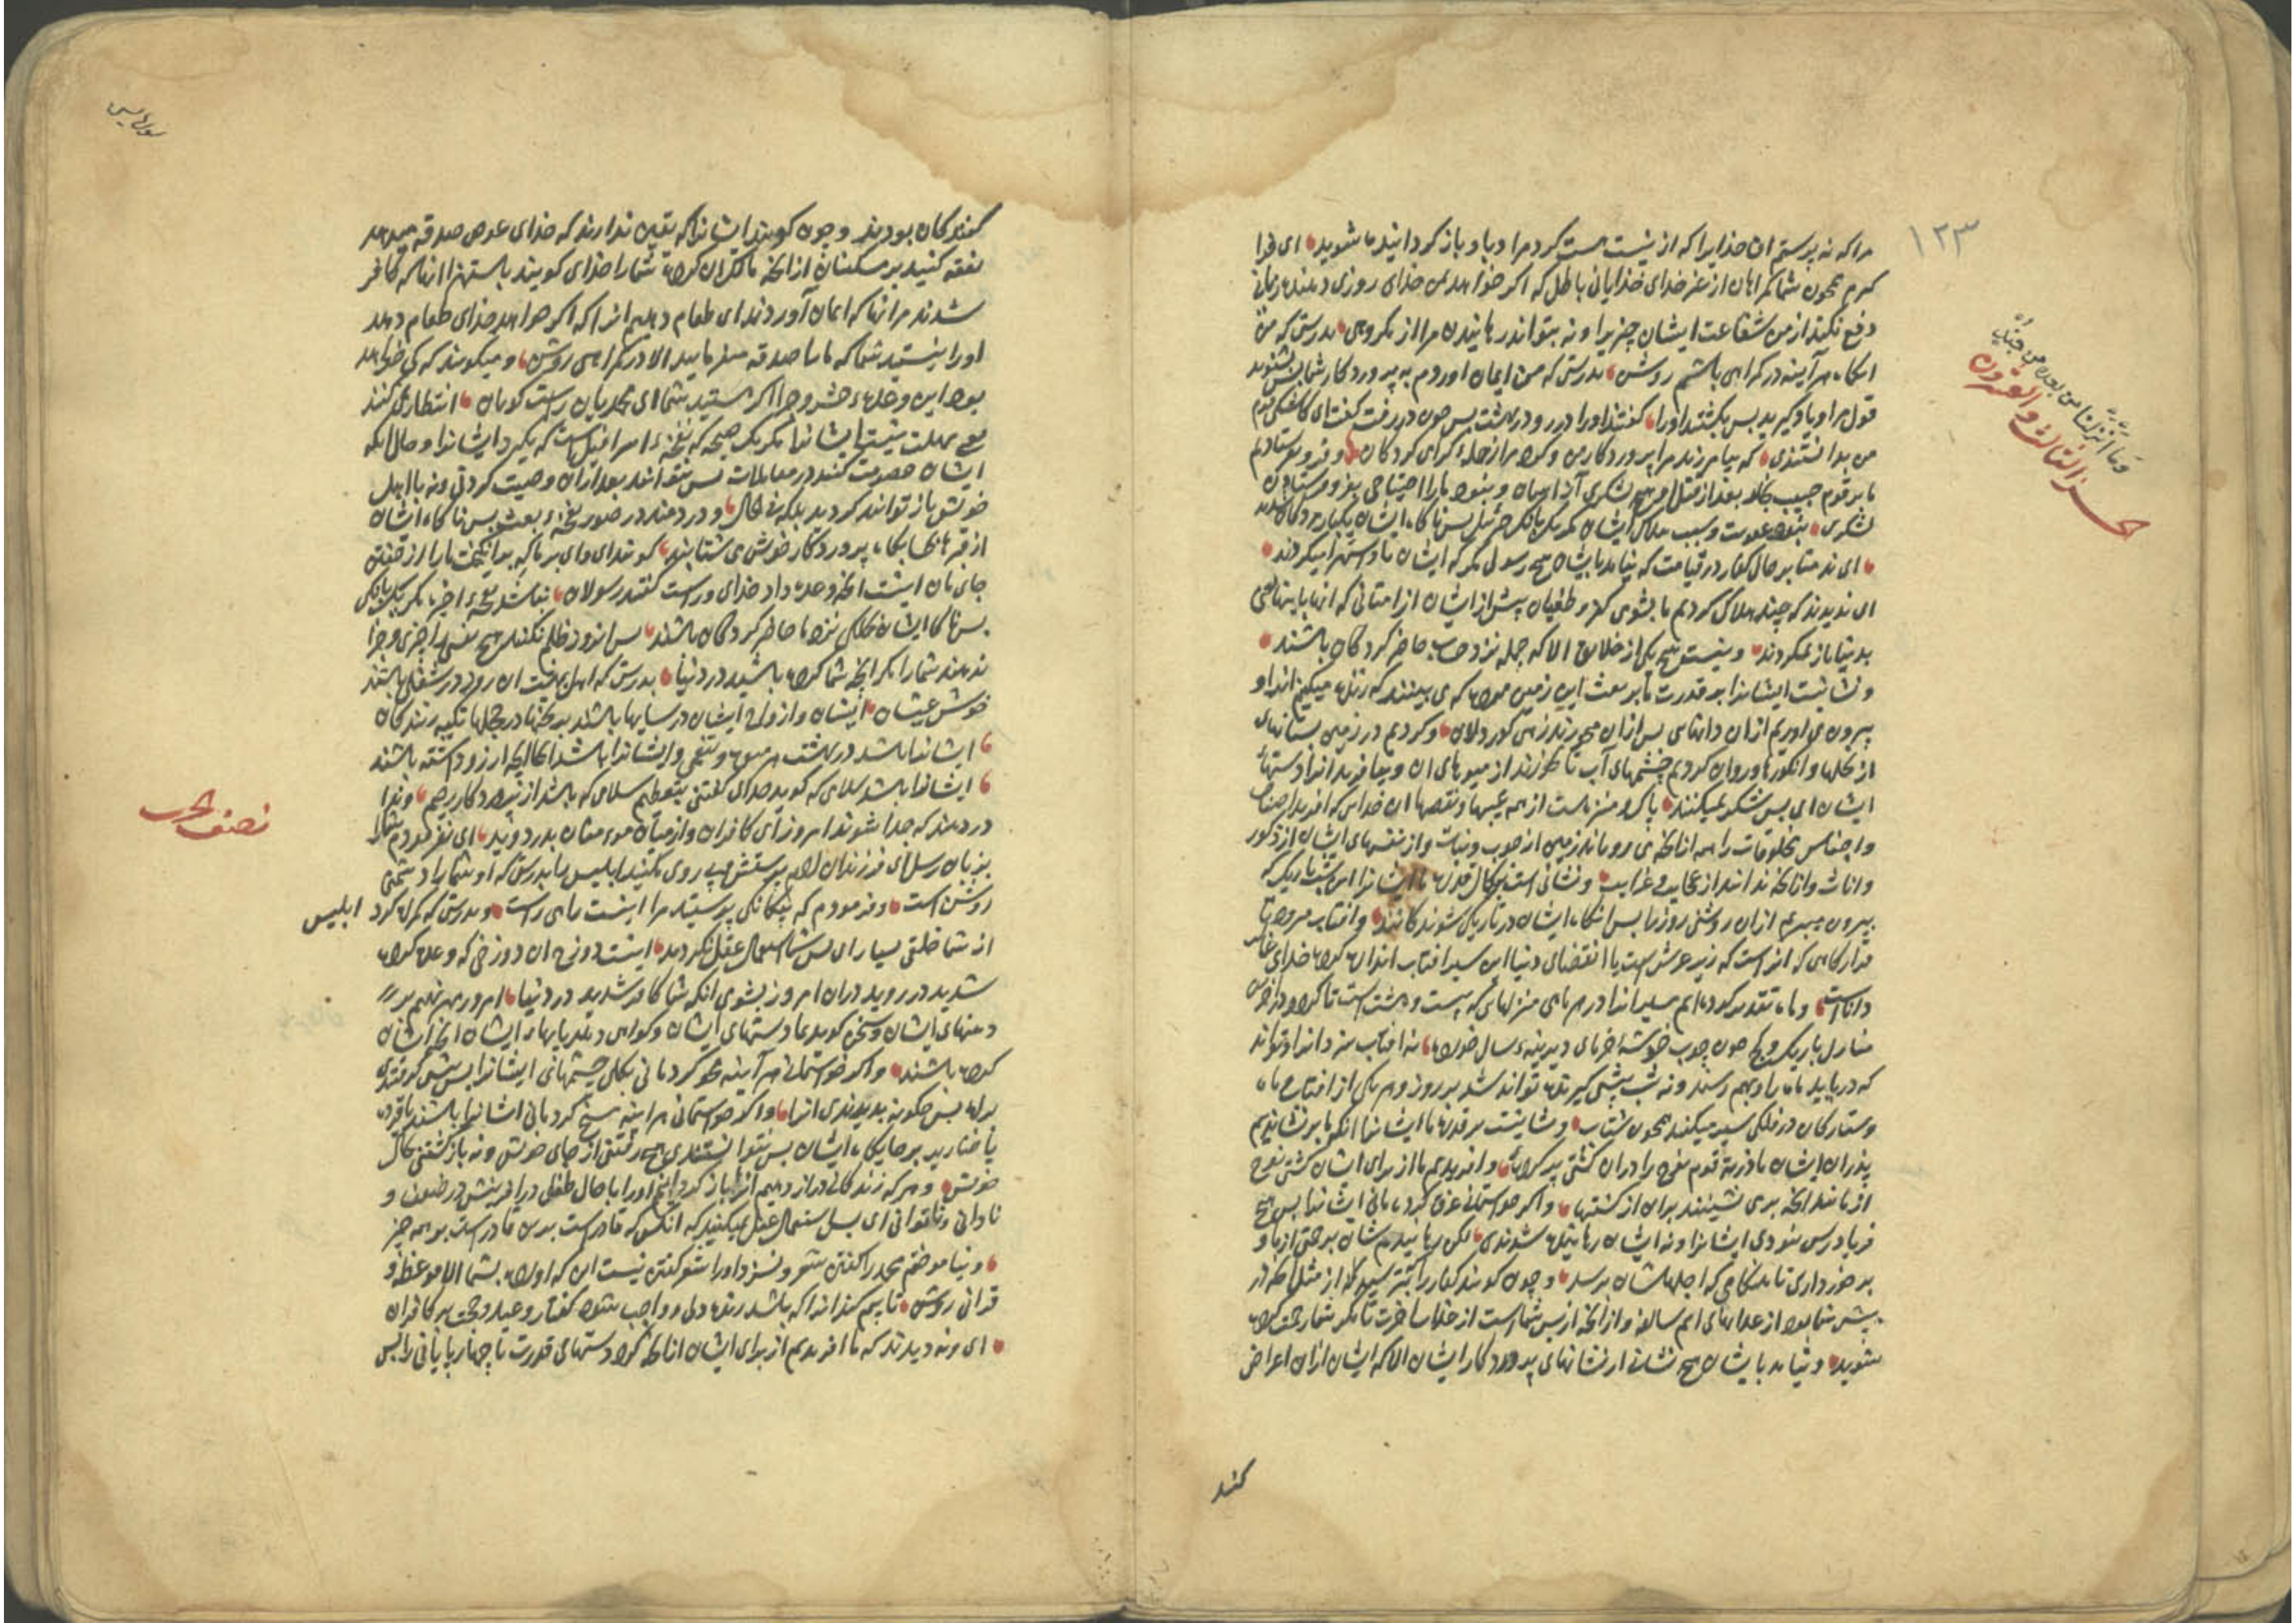 ۱۲۳
مرا که نه پرستم ان خدایرا که از نیست هست کرد مرا و باو باز گردانیده شوید ای فرا
کیرم همچون شما گمراهان از غیر خدای خدایانی باطل که اگر خواهد من خدای روزی دهنده زیانی
دفع نکند از من شفاعت ایشان چیزیرا و نه بتوانند رهانیدن مرا از مکروهی بدرستی که من
انکاه هر آینه در گمراهی باشم روشن بدرستی که من ایمان اوردم به پروردگار شما پس بشنوید
قول مرا و یاد گیرید پس بکشتند او را گفتند او را در رو در بهشت پس چون در رفت گفت ای کاشکی قوم
من بدانستندی که بیامرزید مرا پروردگار من و کرد مرا از جمله گرامی کردگان و فرو نفرستادیم
ما بر قوم حبیب نجار بعد از قتل او هیچ لشکری از اسمان و نبود ما را احتیاجی بفرو فرستادن
لشکری نبود عقوبت و سبب هلاک ایشان مگر یک بانگ جبرئیل پس ناگاه ایشان یکبار مردگان شدند
ای ندامتا بر حال کفار در قیامت که نیامد بایشان هیچ رسولی مگر که ایشان باو استهزا میکردند
ای ندیدند که چند هلاک کردیم ما بشومی کفر و طغیان پیش از ایشان از امتانی که انها باینها
بدنیا باز نمیگردند و نیست هیچ یکی از خلایق الا که جمله نزد حساب حاضر کردگان باشند
و نشانیست ایشانرا بر قدرت ما بر بعث این زمین مرده که می بینند که زنده میکنیم انرا و
بیرون می اوریم از ان دانهای پس از ان میخورند زهی کور دلان و کردیم در زمین بستانهای
از نخلها و انگورها و روان کردیم چشمهای آب تا بخورند از میوهای ان و نیافرید انرا دستهای
ایشان ای پس شکر نمیکنند پاک و منزه است از همه عیبها و نقصها ان خدای که افرید اصناف
و اجناس مخلوقات را همه از انچه می رویاند زمین از حبوب و نبات و از نفسهای ایشان از ذکور
و اناث و از انچه ندانند از عجایب و غرایب و نشانی است بر کمال قدرت ما ایشانرا این شب تاریک که
بیرون میبریم از ان روشنی روز را پس انکاه ایشان در تاریکی شوندکانند و افتاب میرود تا
قرارگاهی که انراست که زیر عرش است یا انقضای دنیا این سیر افتاب اندازه کرده خدای غالب
داناست و ماه تقدیر کرده ایم سیر انرا در هر ماهی منزلهای که بیست و هشت است تا گردد در اخرین
منازل باریک و کج چون چوب خوشه خرمای دیرینه سال خورده نه افتاب سزد انرا و تواند
که دریابد ماه را و بهم رسند و نه شب پیشی گیرنده تواند شد بر روز و هر یکی از افتاب و ماه
و ستارگان در فلکی سیر میکنند همچون شتاب و نشانیست بر قدرت ما ایشانرا انکه ما برنشاندیم
پدران ایشان با ذریه قوم نوح را در ان کشتی پر کرده و افریدیم ما از برای ایشان کشتی نوح
از مانند انچه بری نشینند بران از کشتیها و اگر خواستمانی غرق کردمانی ایشانرا پس هیچ
فریادرس نبودی ایشانرا و نه ایشان رهانیده شوندی لکن رهانیدیم شان برحمتی از ما و
برخورداری تا بهنگامی که اجلهاشان برسد و چون گویند کفار را بترسید
پیش شما بود از عذابهای امم سالفه و از انچه از پس شماست از عذاب اخرت تا مگر شما رحمت کرده
شوید و نیامد بایشان هیچ نشانی از نشانهای پروردگار ایشان الا که ایشان ازان اعراض
کنند
وَمَا أَنزَلْنَا مِن بَعْدِه مِن جُندٍ
الحزب الثالث والعشرون
سورة یس
کنندگان بودند و چون گویند ایشانرا که یقین ندارند که خدای عوض صدقه میدهد
نفقه کنید بر مسکینان از انچه مالک ان کرده شما را خدای گویند باستهزا انها که کافر
شدند مر انها که ایمان آوردند ای طعام دهیم انرا که اگر خواهد خدای طعام دهد
اورا نیستید شما که ما را صدقه میفرمایید الا در گمراهی روشن و میگویند که کی خواهد
بود این وعده حشر و جزا اگر هستید شما ای محمدیان راست گویان انتظار نمیکنند
ایشانرا مگر یک صیحه که نفخه اسرافیل است که بگیرد ایشانرا و حال انکه
ایشان خصومت کنند در معاملات پس نتوانند بعد از ان وصیت کردن و نه با اهل
خویش باز توانند گردید بلکه و در دمند در صور نفخه بعث پس ناگاه ایشان
از قبرها بجایگاه پروردگار خویش می شتابند گویند ای وای بر ما که برانگیخت ما را از خفتن
جای مان اینست انچه وعده داد خدای و راست گفتند رسولان نباشد نفخه اخر مگر یک بانگی
پس ناگاه ایشان همگی نزد ما حاضر کردگان باشند پس امروز ظلم نکنند هیچ نفسی را چیزی و جزا
ندهند شما را مگر انچه شما کرده باشید در دنیا بدرستی که اهل بهشت ان روز در شغلی باشند
خوش عیشان ایشان و ازواج ایشان در سایها باشند بر تختها در حجلها تکیه زنندگان
ایشانرا باشد در بهشت هر میوه و تنعمی و ایشانرا باشد انجا انچه ارزو داشته باشند
ایشانرا باشد سلامی که گوید خدای گفتنی بتعظیم سلامی که باشد از نزد پروردگار رحیم و ندا
در دهند که جدا شوید امروز ای کافران و از میان مومنان بدر روید ای نفرمودم شما را
بزبان رسل ای فرزندان ادم بپرستش پیروی نکنید ابلیس را بدرستی که او شما را دشمنی
روشن است و فرمودم که بیگانگی پرستید مرا اینست راهی راست و بدرستی که گمراه کرد ابلیس
از شما خلقی بسیار ای پس شما استعمال عقل نکردید اینست دوزخ ان دوزخی که وعده کرده
شدید در روید دران امروز بشومی انکه شما کافر شدید در دنیا امروز مهر نهیم بر
دهنهای ایشان و سخن گوید با ما دستهای ایشان و گواهی دهد پایهای ایشان انچه ایشان
کرده باشند و اگر خواستمانی هر آینه محو کردمانی بکلی چشمهای ایشانرا پس پیش گرفتندی
راه پس چگونه بدیدندی انرا و اگر خواستمانی هر اینه مسخ کردمانی ایشانرا
یا خنازیر بر جایگاه ایشان پس نتوانستندی هیچ رفتنی از جای خویش و نه باز گشتنی بحال
خویش و هر که زندگانی دراز دهیم انرا باز گردانیم اورا با حال طفلی در افرینش در ضعف و
نادانی و ناتوانی ای پس استعمال عقل نمیکنید که انکس که قادر است برین قادر است بر همه چیز
و نیاموختیم محمد را گفتن شعر و نسزد اورا شعر گفتن نیست ان که اورده بشما الا موعظه و
قرانی روشن تا بیم کند انرا که باشد زنده دل و واجب شود گفتار وعید و حجت بر کافران
ای و نه دیدند که ما افریدیم از برای ایشان از انچه کرد دستهای قدرت ما چهار پایانی را پس
نصف الحزب